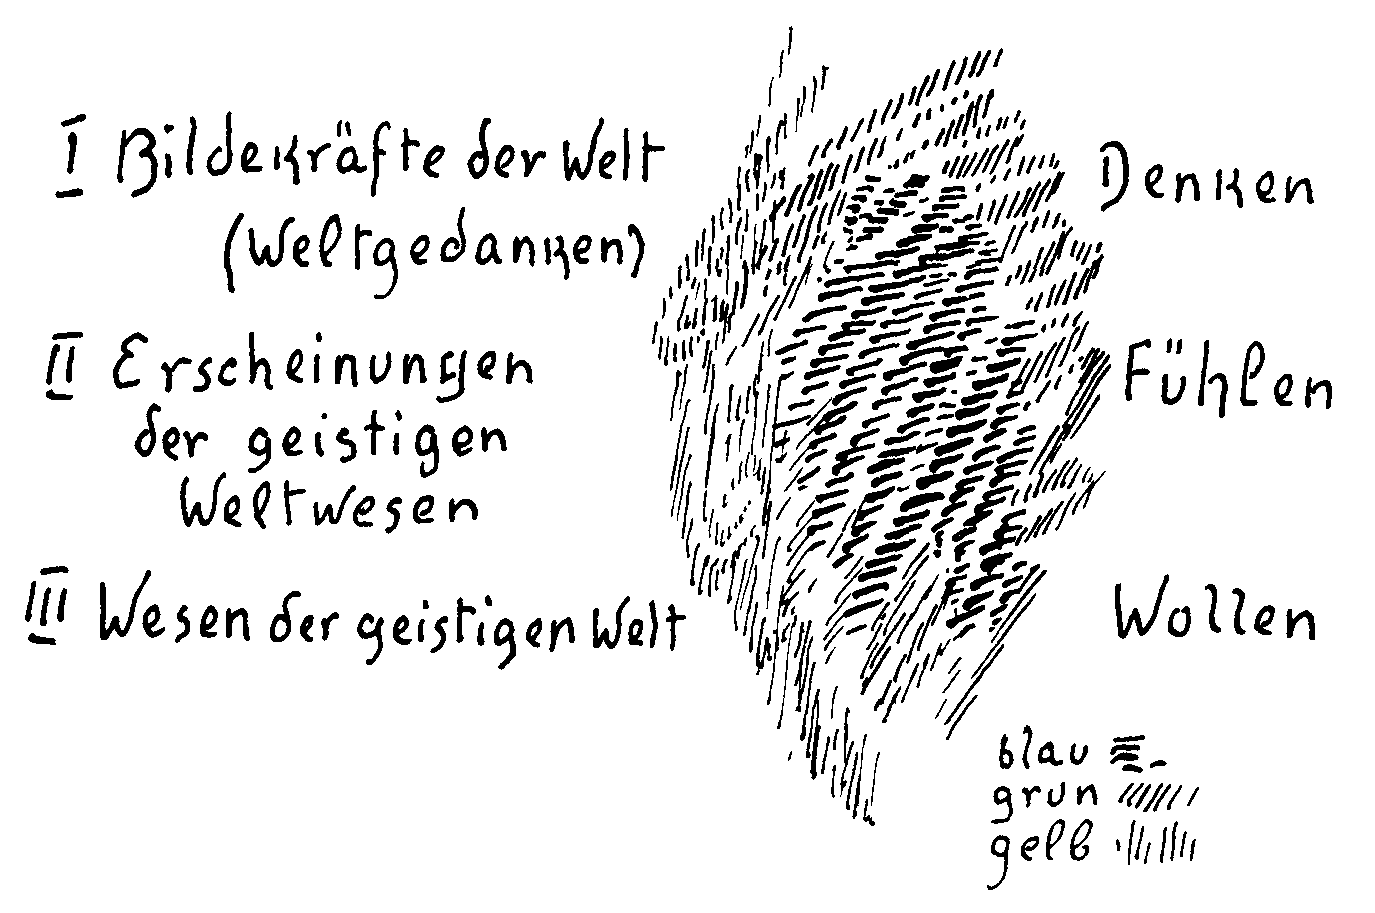 I Bildekräfte der Welt
(Weltgedanken)
Denken
II Erscheinungen
der geistigen
Weltwesen
Fühlen
III Wesen der geistigen Welt
Wollen
blau
grun
gelb